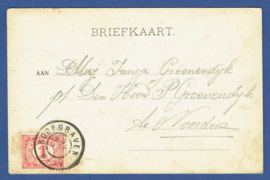 BRIEFKAART.
AAN Mej Jansje Groenendijk
p/t Den Heer P Groenendyk
te Woerden
BODEGRAVEN
1